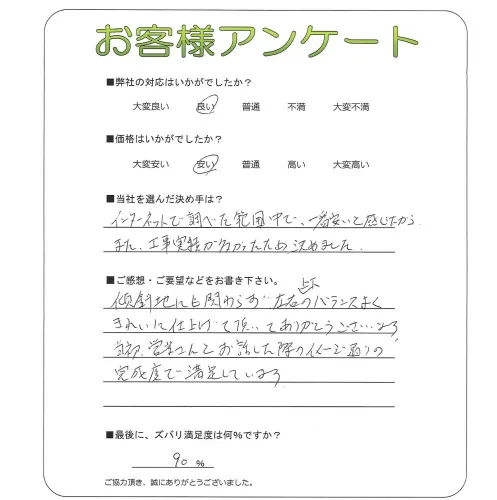 お客様アンケート
■弊社の対応はいかがでしたか？
大変良い 良い 普通 不満 大変不満
■価格はいかがでしたか？
大変安い 安い 普通 高い 大変高い
■当社を選んだ決め手は？
インターネットで調べた範囲中で、一番安いと感じたから
また、工事実績が多かったため、決めました。
■ご感想・ご要望などをお書き下さい。
傾斜地にも関わらず 左右のバランスよく
きれいに仕上げて頂いてありがとうございます
当初、営業さんとお話した際のイメージ通りの
完成度で満足している
■最後に、ズバリ満足度は何%ですか？
90 %
ご協力頂き、誠にありがとうございました。